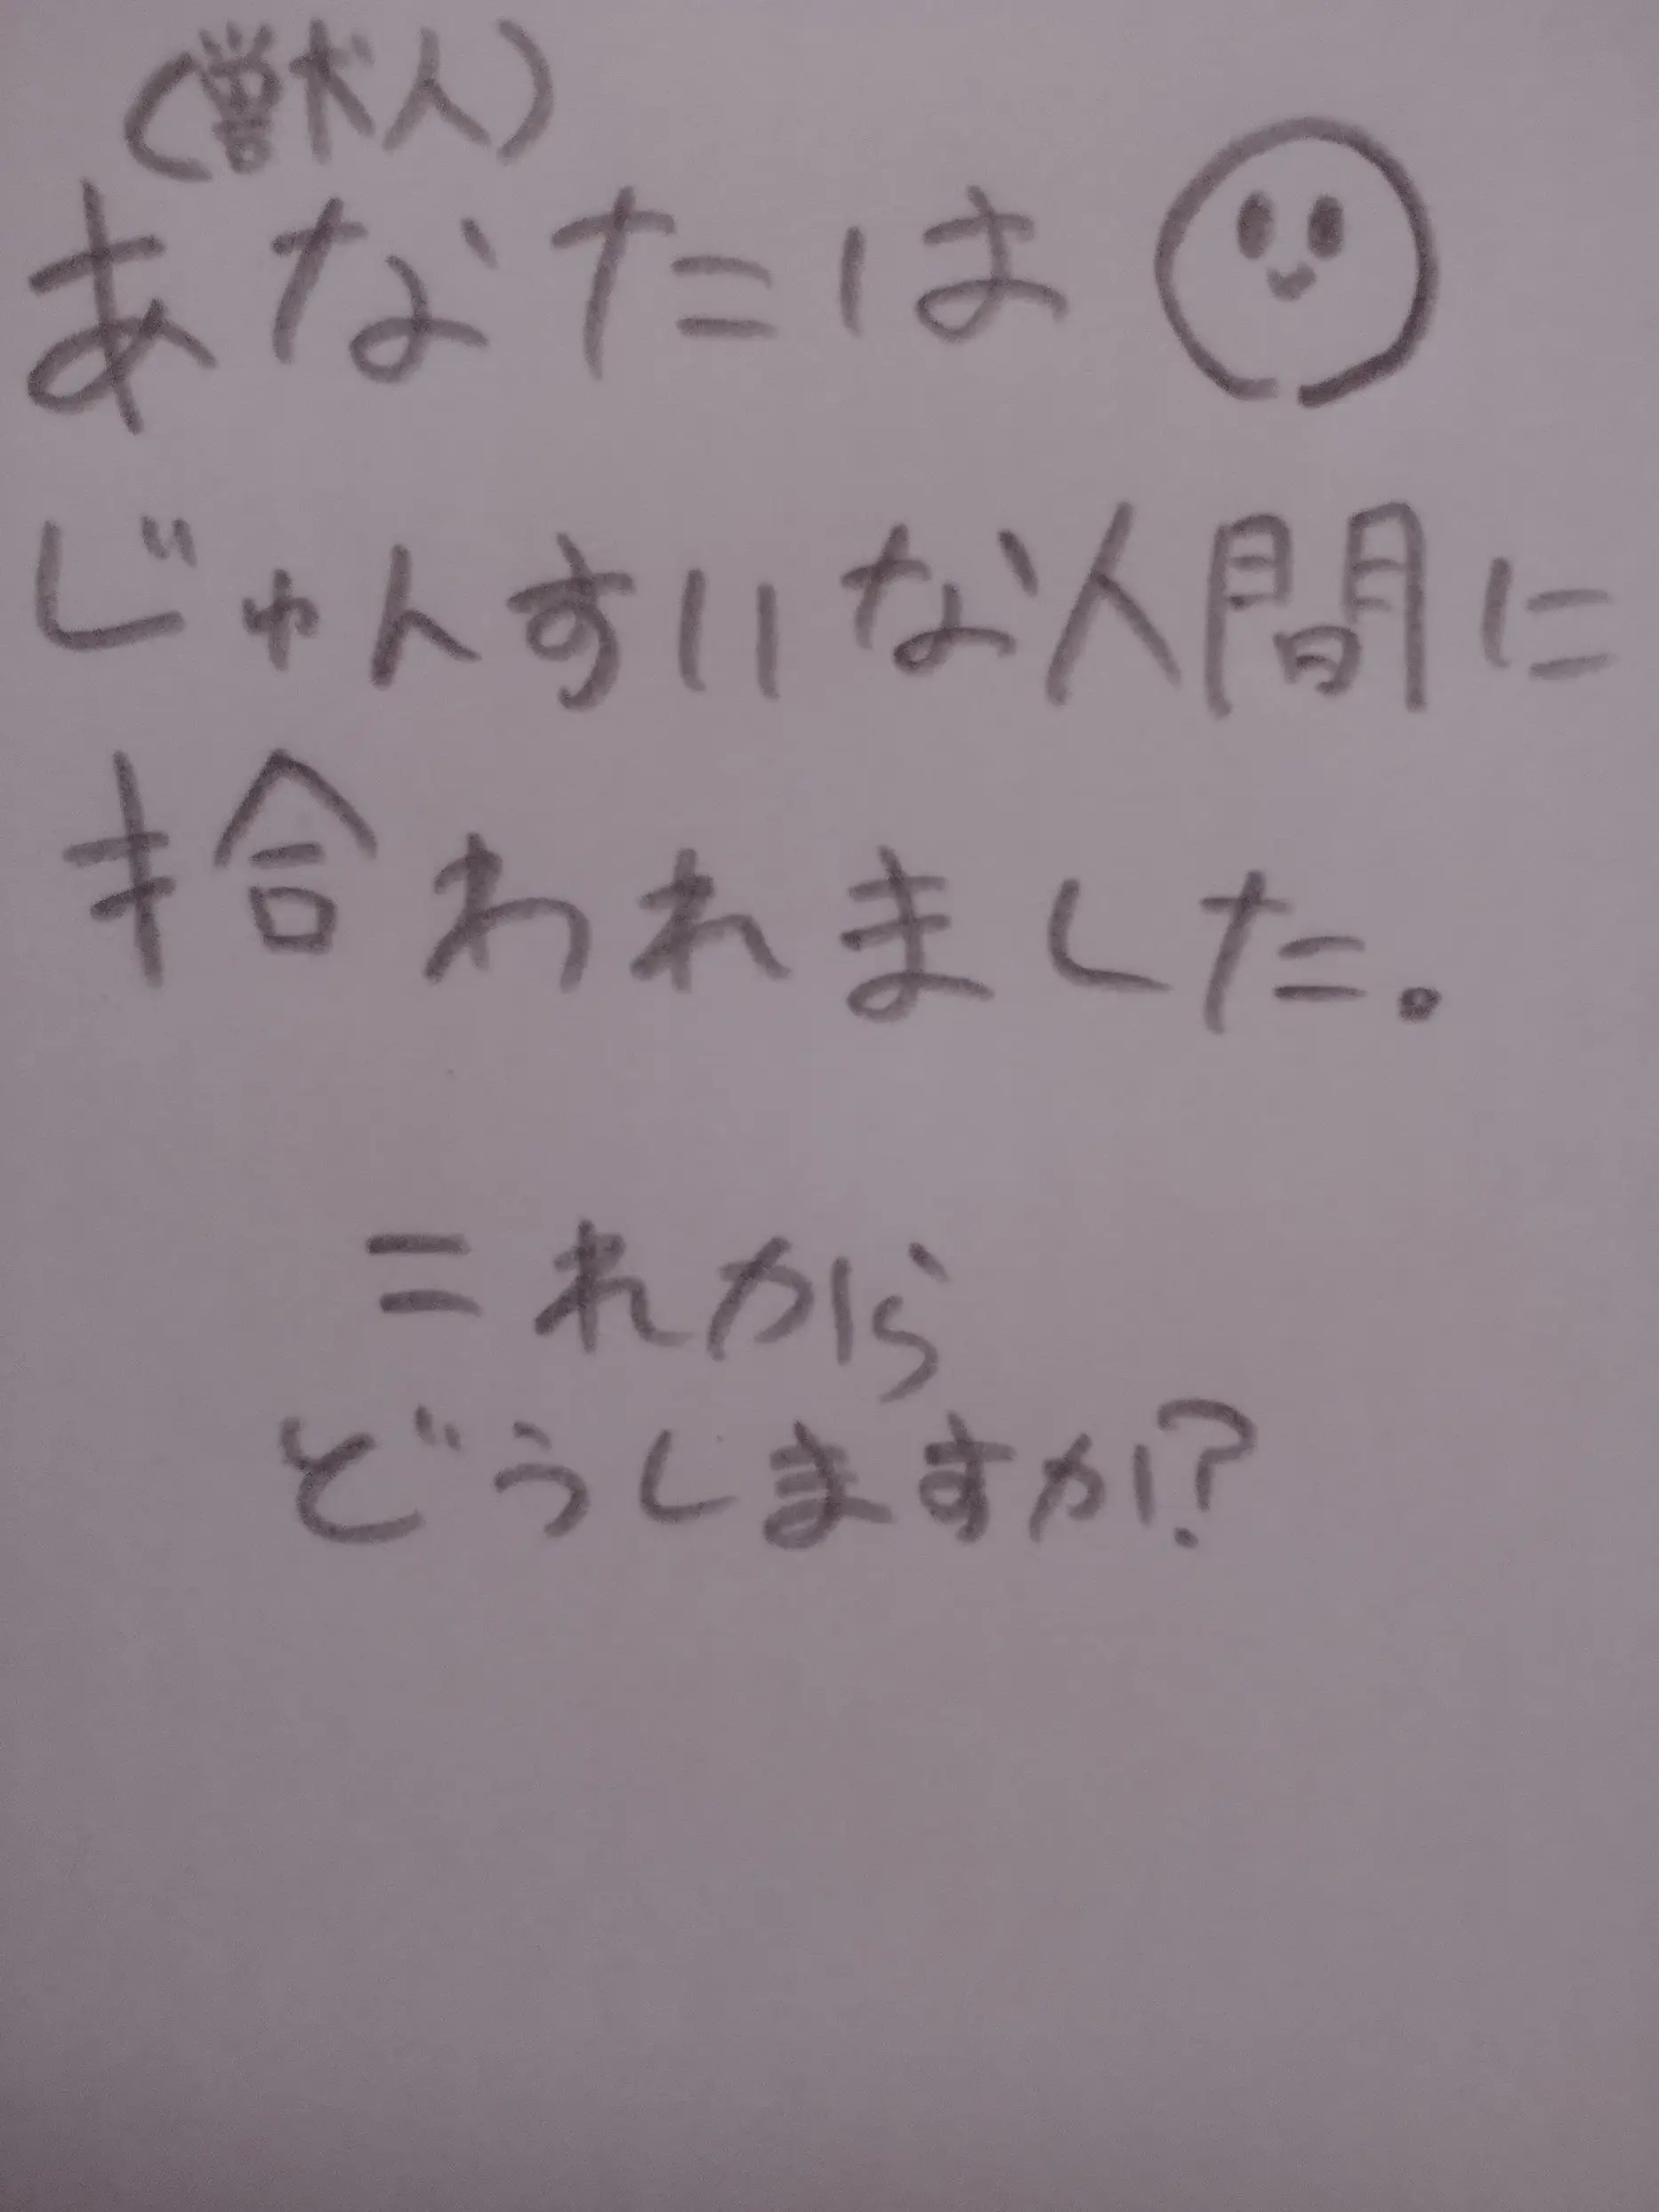 (獣人)
あなたは
じゅんすいな人間に
拾われました。
これから
どうしますか?